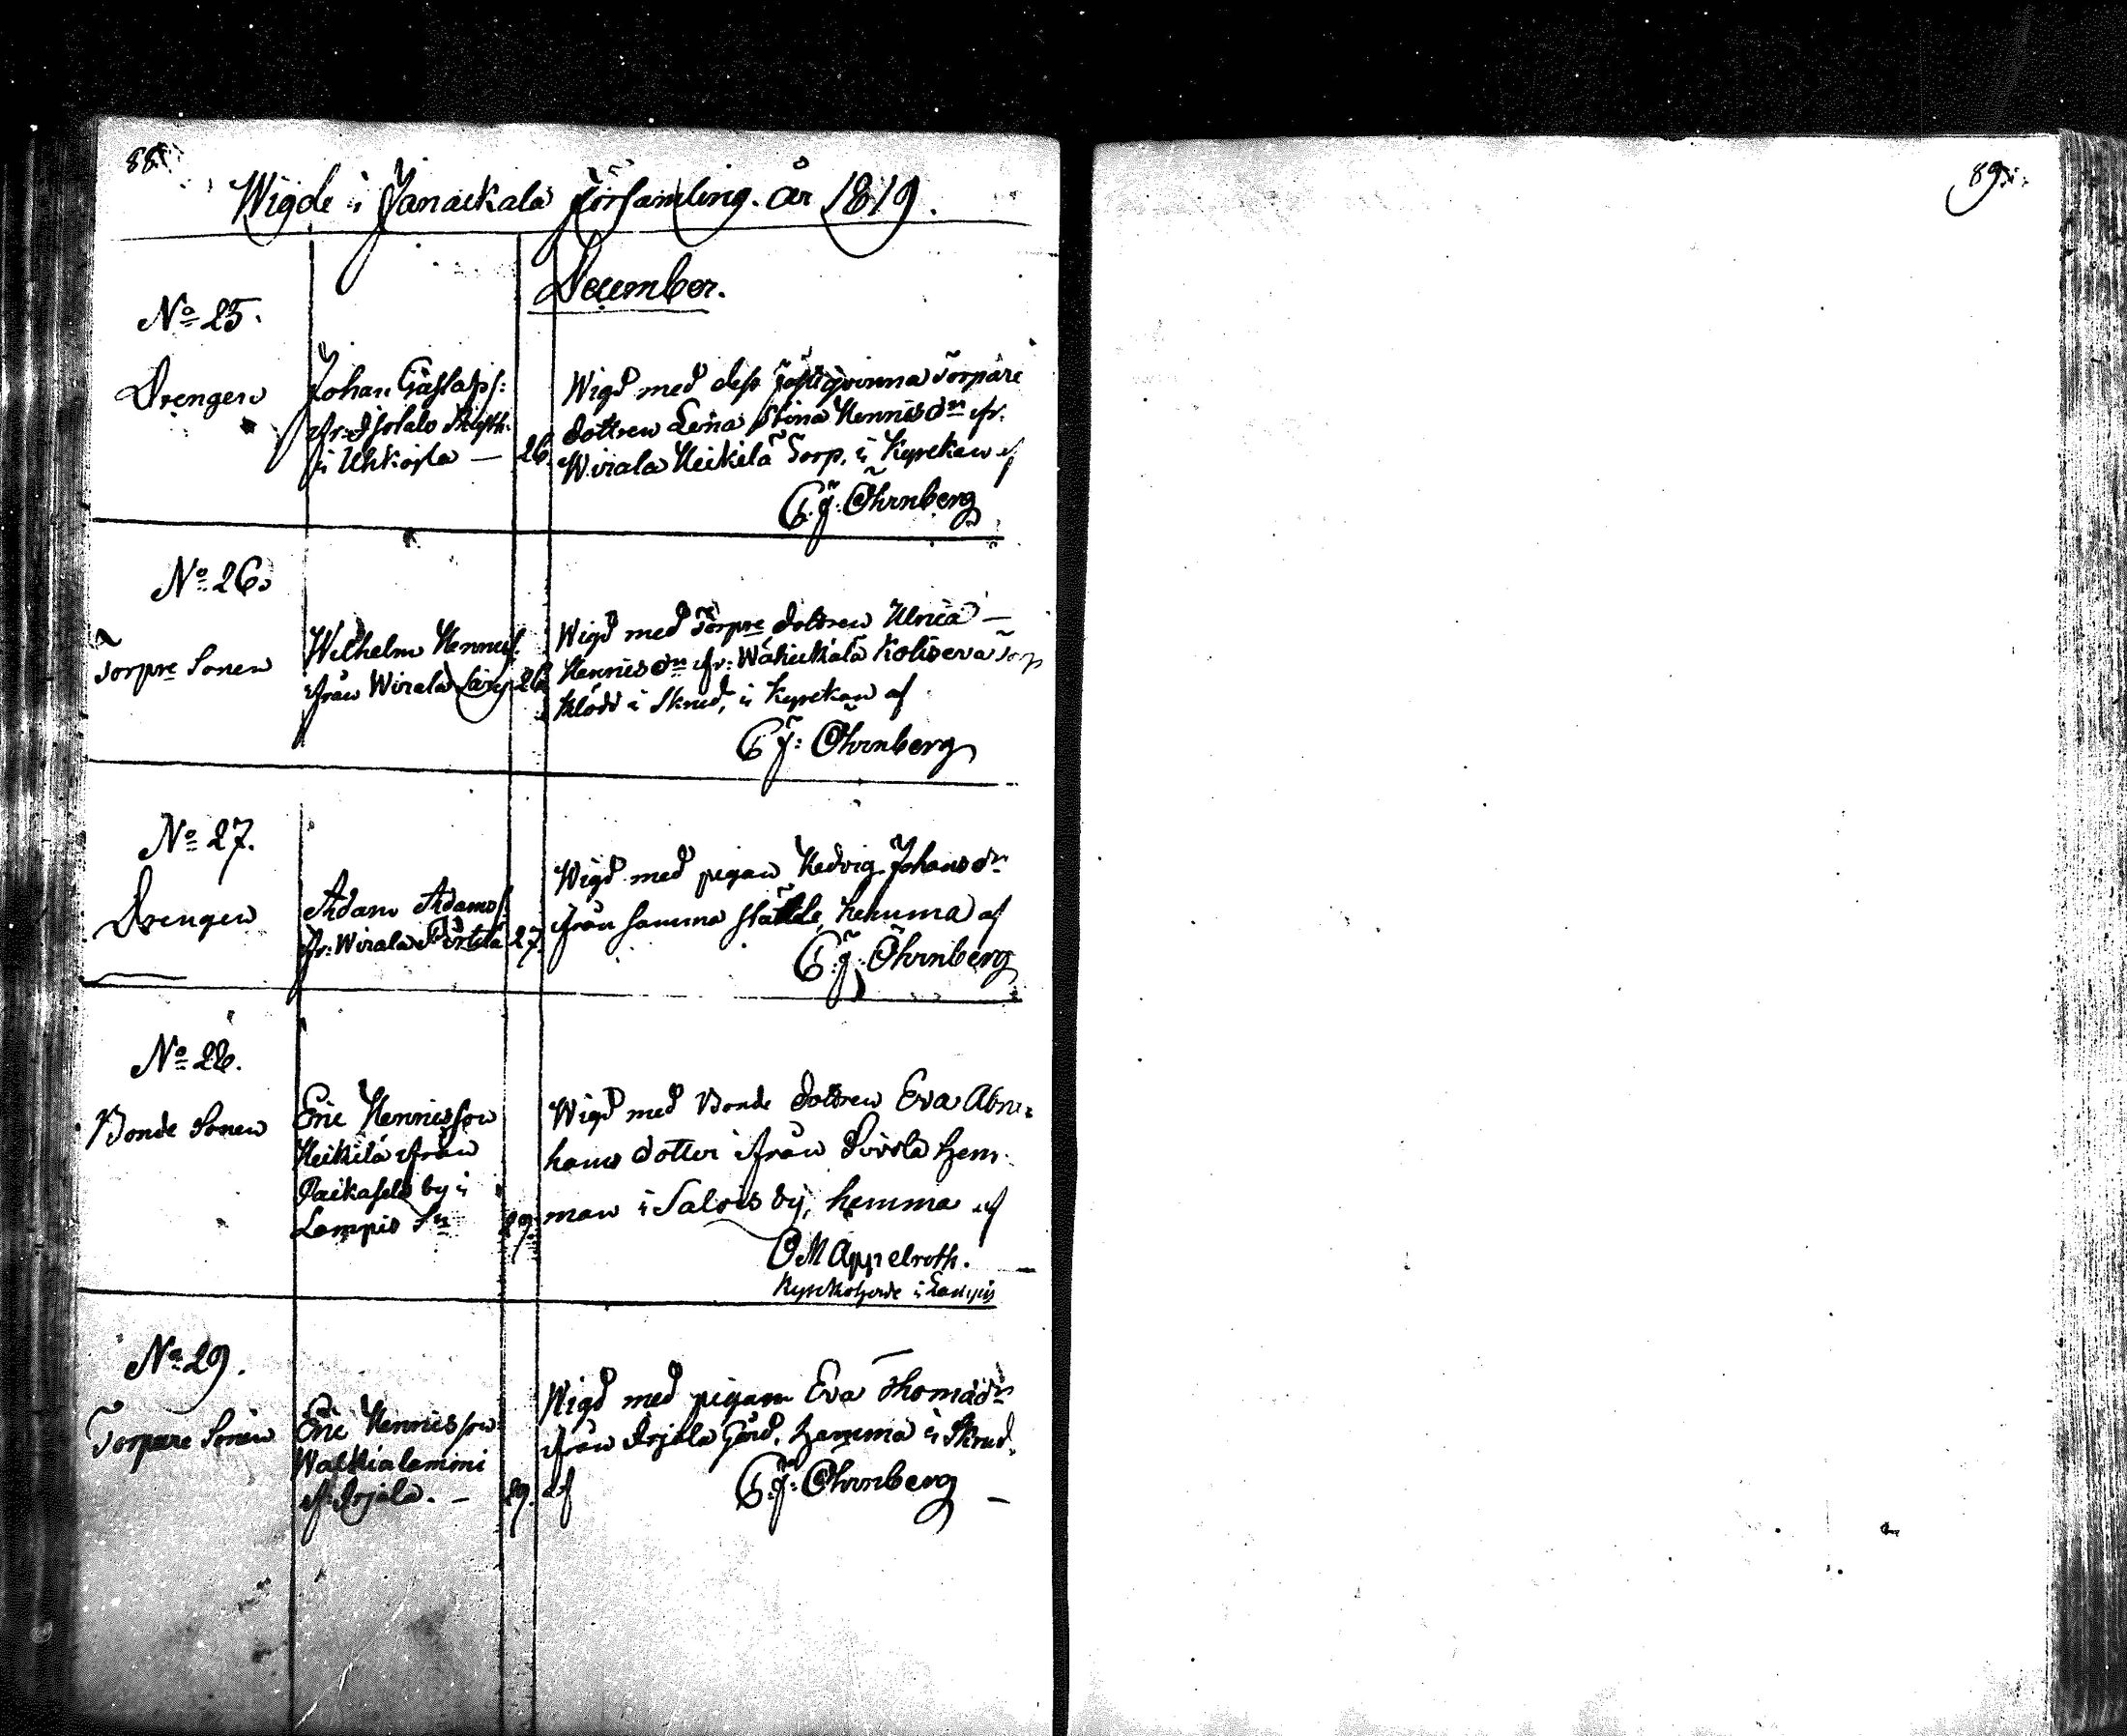 88.
Wigde i Janackala Församling. År 1819.
December.
No 25.
Drengen
Johan Gustafss:
fr: Isotalo
i Uhkoila —
26.
Wigd med dess Fästeqvinna Torpare
dottren Lena Stina Hennisdn fr.
Wirala Heikilä Torp, i Kyrckan af
C. J. Öhrnberg
No 26.
Torpre Sonen
Wilhelm Hennss.
från Wirala
26
Wigd med Torpre dottren Ulrica —
Hennisdn fr: Torp
klädd i Skrud, i Kyrckan af
C J: Öhrnberg
No 27.
Drengen
Adam Adamss.
fr: Wirala Pertilä
27.
Wigd med pigan Hedvig Johansdn
från samma ställe, hemma af
C: J: Öhrnberg
No 28.
Bonde Sonen
Eric Hennisson
Heikilä från
by i
Lampis Sn
29.
Wigd med Bonde dottren Eva Abra:
hams dotter ifrån hem-
man i Salois by, hemma af
O M Appelroth.
Kyrckoherde i Lampis
No 29.
Torpare Sonen
Eric Hennisson
Walkialammi
fr. Irjala. —
29.
Wigd med pigan Eva Thomædn
från Irjala Gård, hemma i Skrud.
af C: J: Öhrnberg —
89.